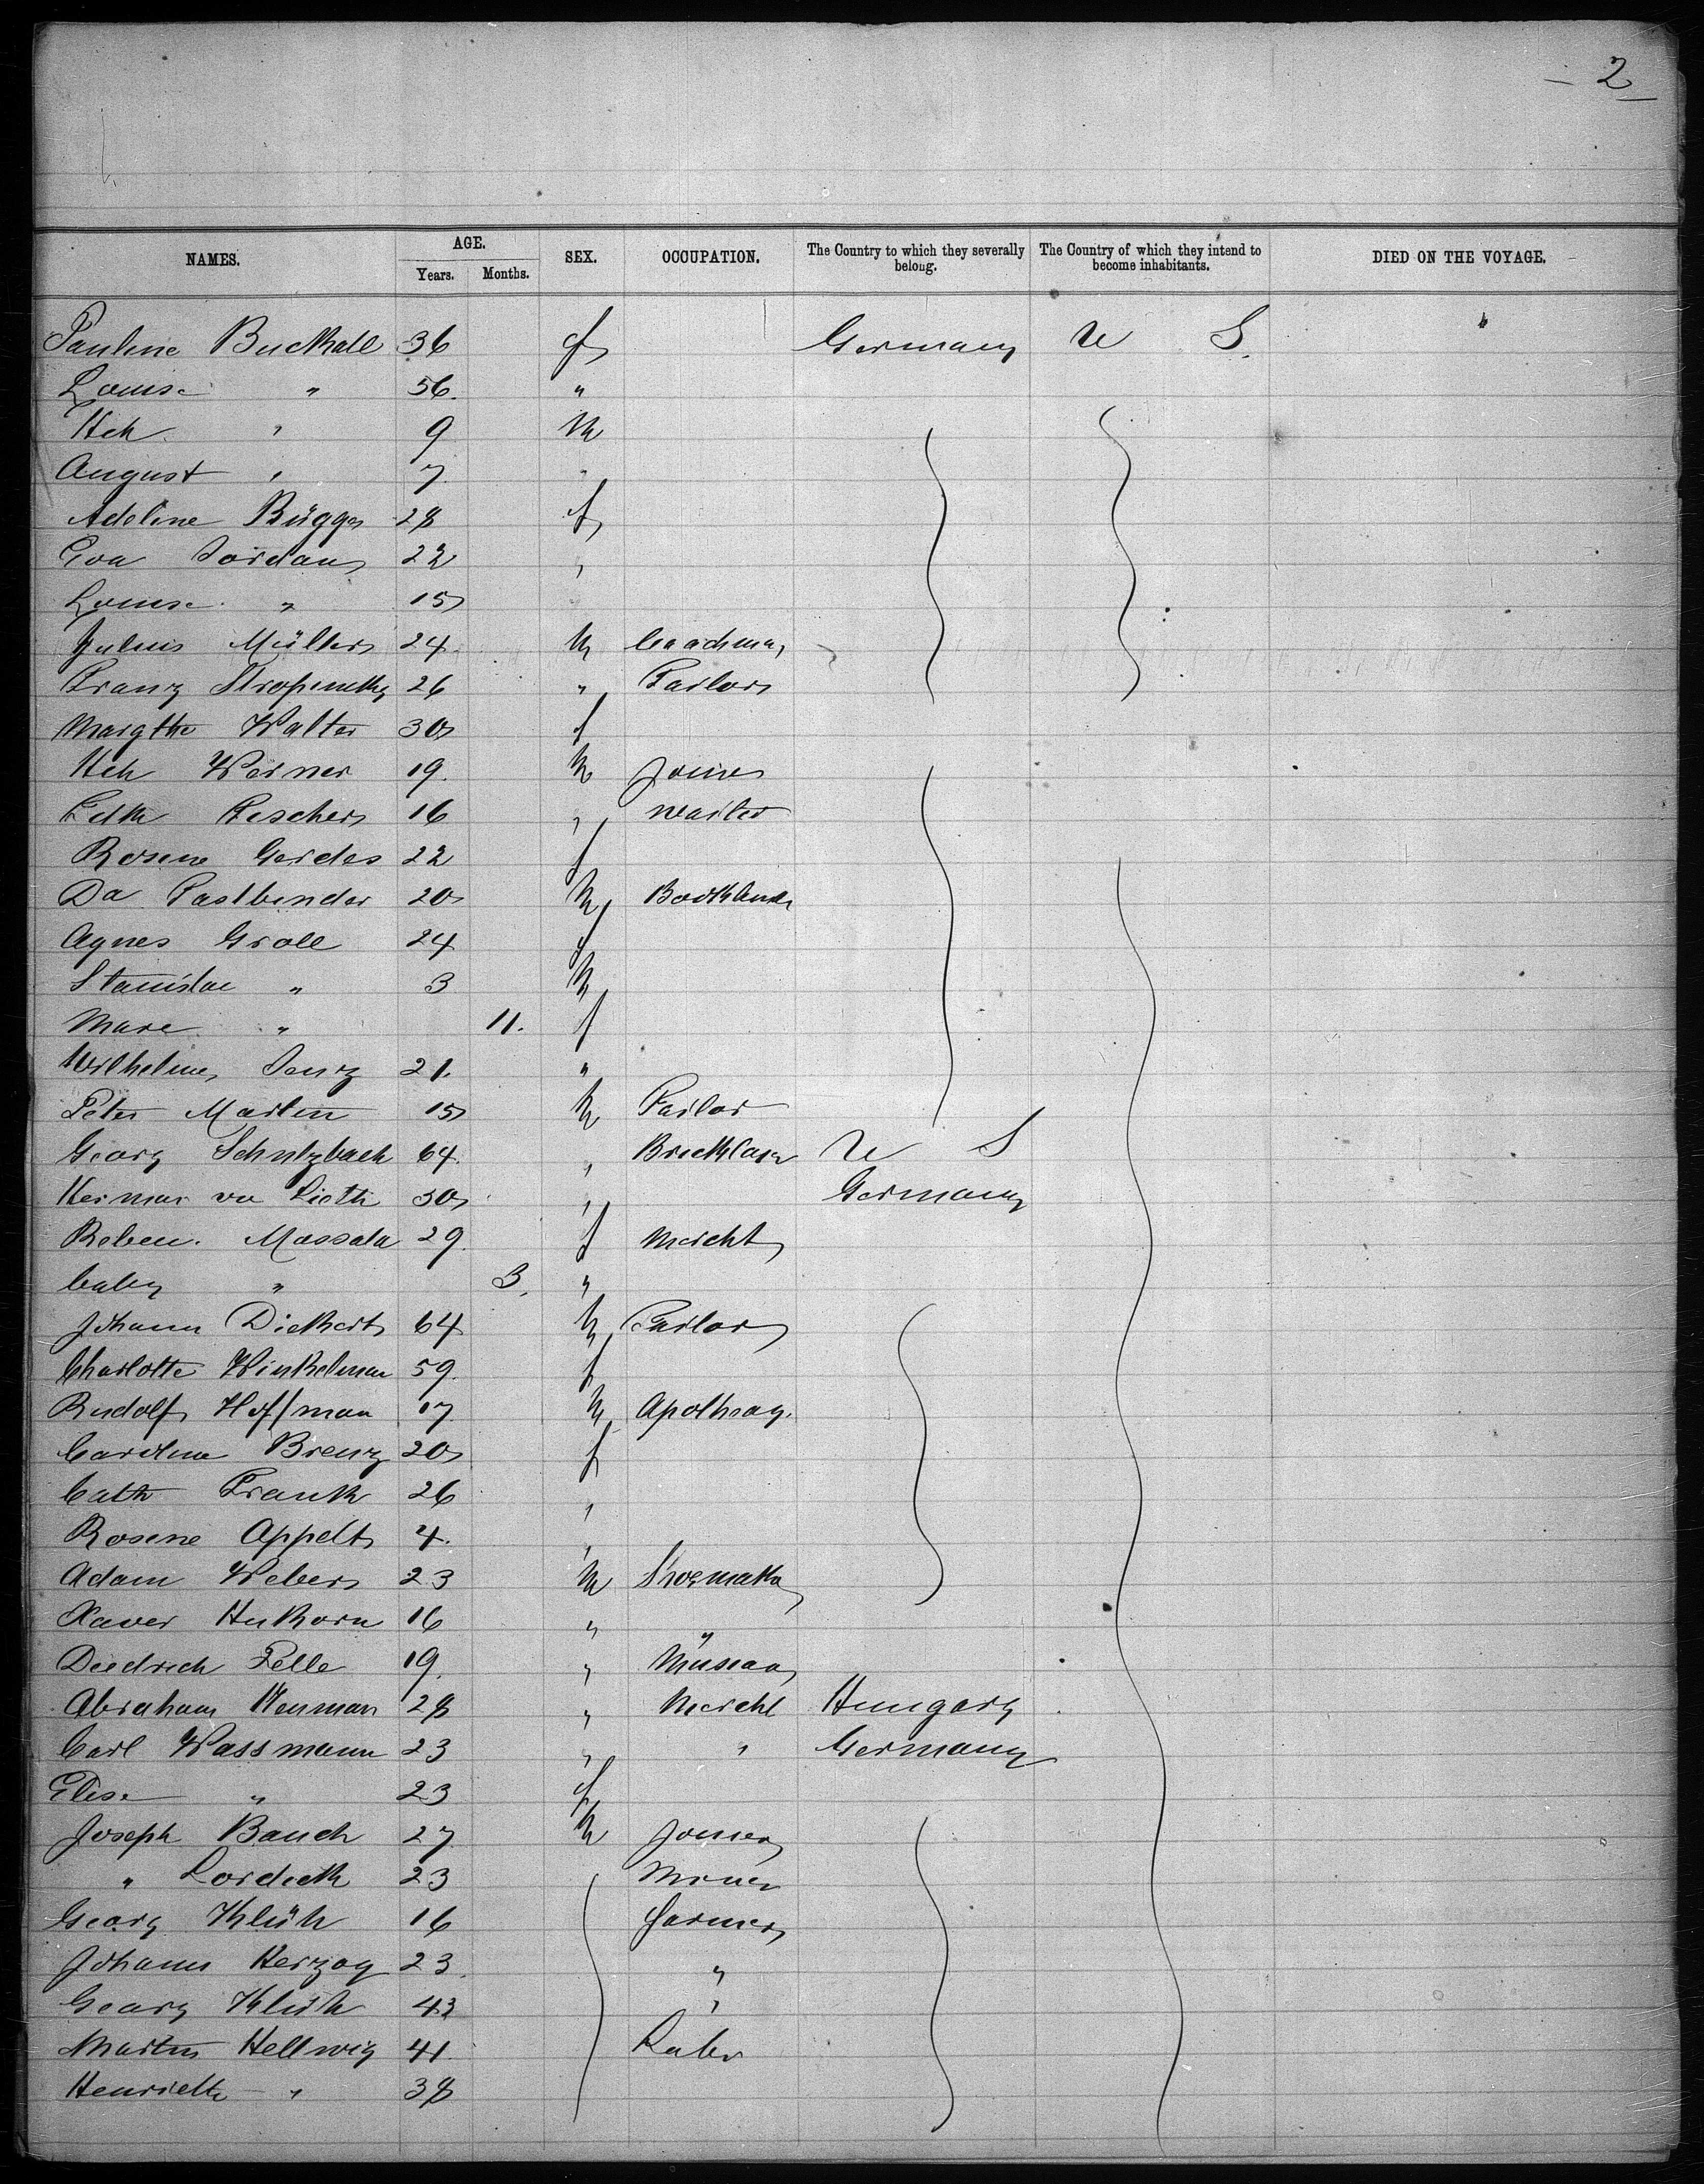 2
NAMES. AGE. SEX. OCCUPATION. The Country to which they severally belong. The Country of which they intend to become inhabitants. DIED ON THE VOYAGE.
Years. Months.
Pauline Buckall 36 f Germany U S.
Louise " 56. "
Hch " 9 M
August " 7. "
Adeline Bügger 28 f
Eva Jordan 22 "
Louise " 15
Julius Müller 24. M Coachman
Franz 26 " Tailor
Margthe Walter 30 f
Hch Werner 19. M Joiner
Fischer 16 " waiter
Rosine Gerdes 22 f
Da Fastbender 20 M
Agnes Grall 24 f
Stanislav " 3 M
Marie " 11. f
Wilhelmine Jenz 21. "
Peter Martin 15 M Tailor
Georg Schulzbach 64. " Bricklayer U S
Herman von Lieth 30 " Germany
Massala 29. f Mercht
baby " 3. "
Johann Diekhert 64 M Tailor
Charlotte Winkelman 59. f
Rudolf Hoffman 17 M Apothecary.
Caroline Brenz 20 f
Cath Frank 26 "
Rosine Appelt 4. "
Adam Weber 23 M Shoemaker
Xaver Hukorn 16 " "
Diedrich Pelle 19. "
Abraham Neuman 28 " Mercht Hungary
Carl Wassmann 23 " " Germany
Elise " 23 f
Joseph Bauch 27. M Joiner
" Lordieck 23 Miner
Georg Klüh 16 farmer
Johann Herzog 23. "
Georg Klüh 43 "
Martin Hellwig 41. Labr
Henriette " 38